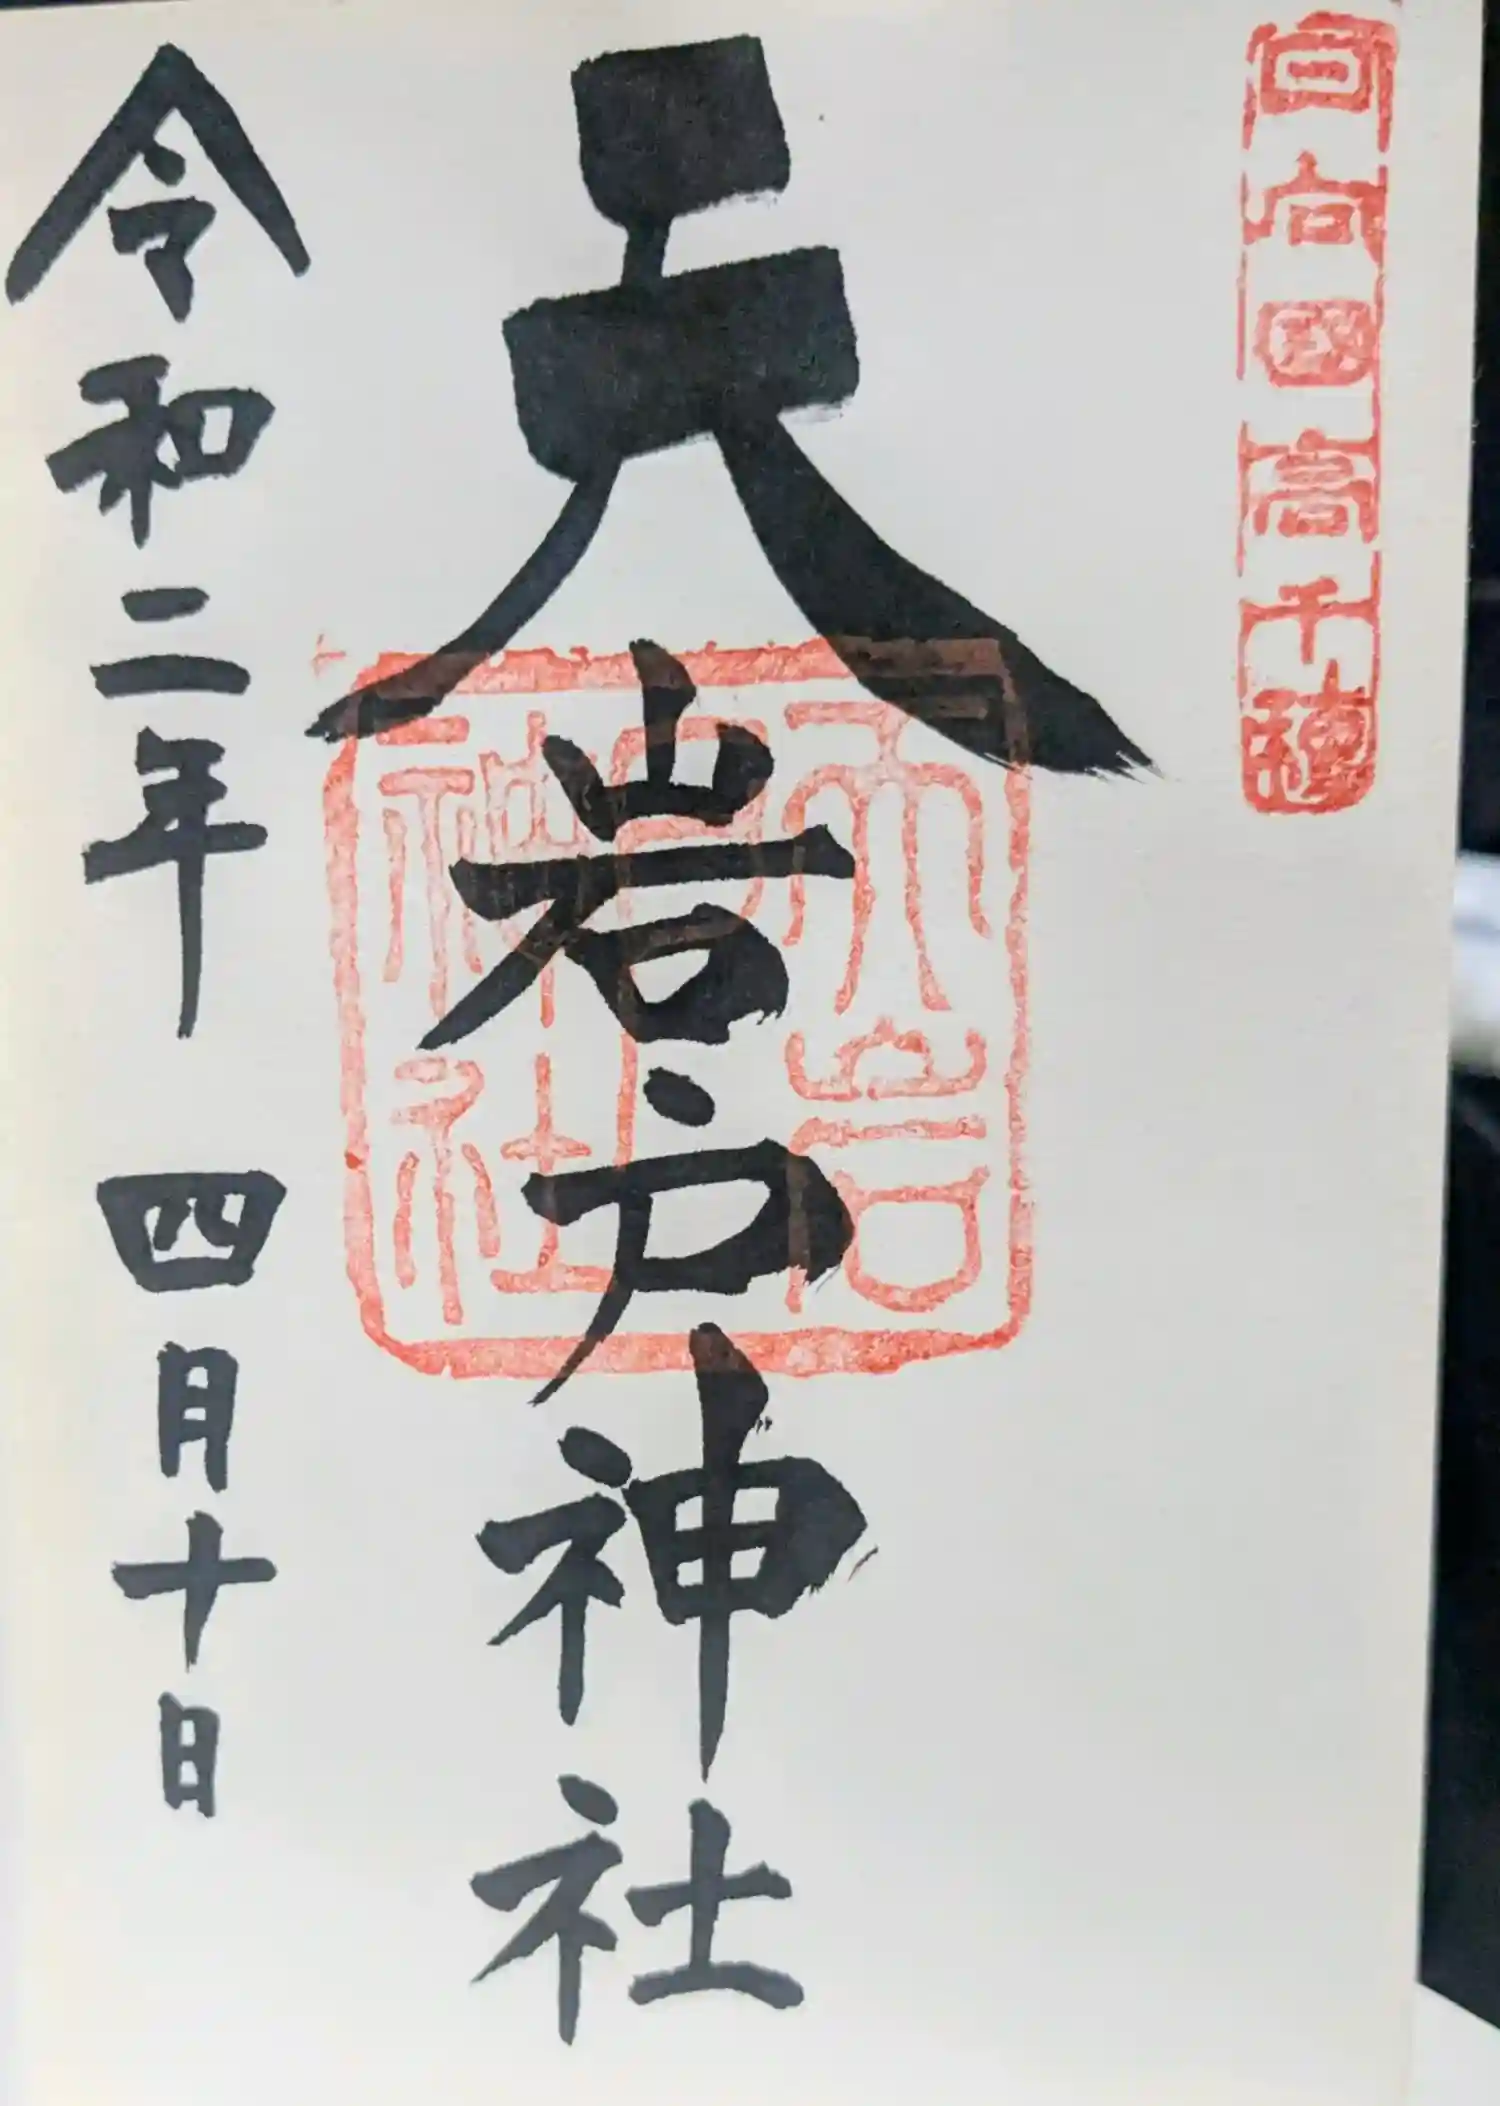 日向國高千穗
天岩戸神社
天岩戸神社
令和二年 四月十日